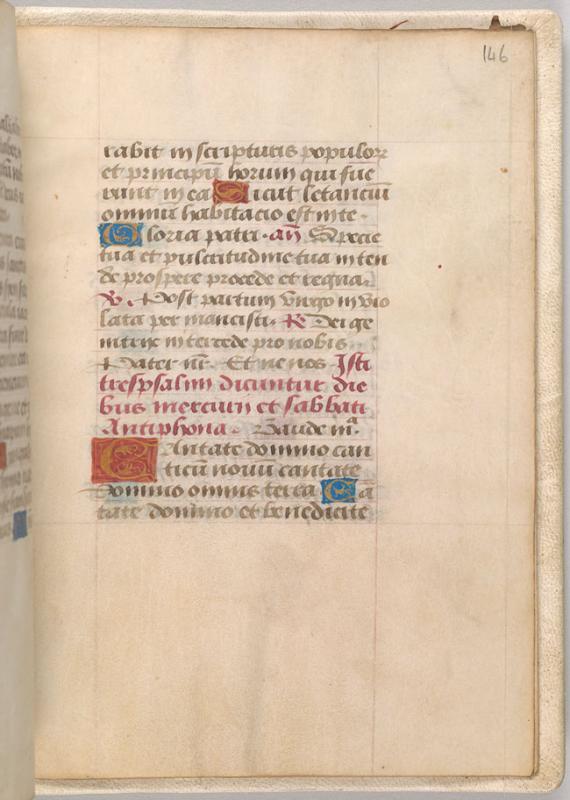 146
rabit in scripturis populoꝝ
et principū horum qui fue
runt in ea Sicut letanciū
omniū habitacio est in te.
Gloria patri. an̄ Specie
tua et pulcritudine tua inten
de prospere procede et regna.
℣. Post partum virgo invio
lata permansisti. ℟. Dei ge
nitrix intercede pro nobis.
Pater nr̄. Et ne nos Isti
tres psalmi dicuntur die
bus mercurii et sabbati
Antiphona. Gaude mᵃ.
Cantate domino can
ticū novū cantate
domino omnis terra Ca
tate domino et benedicite